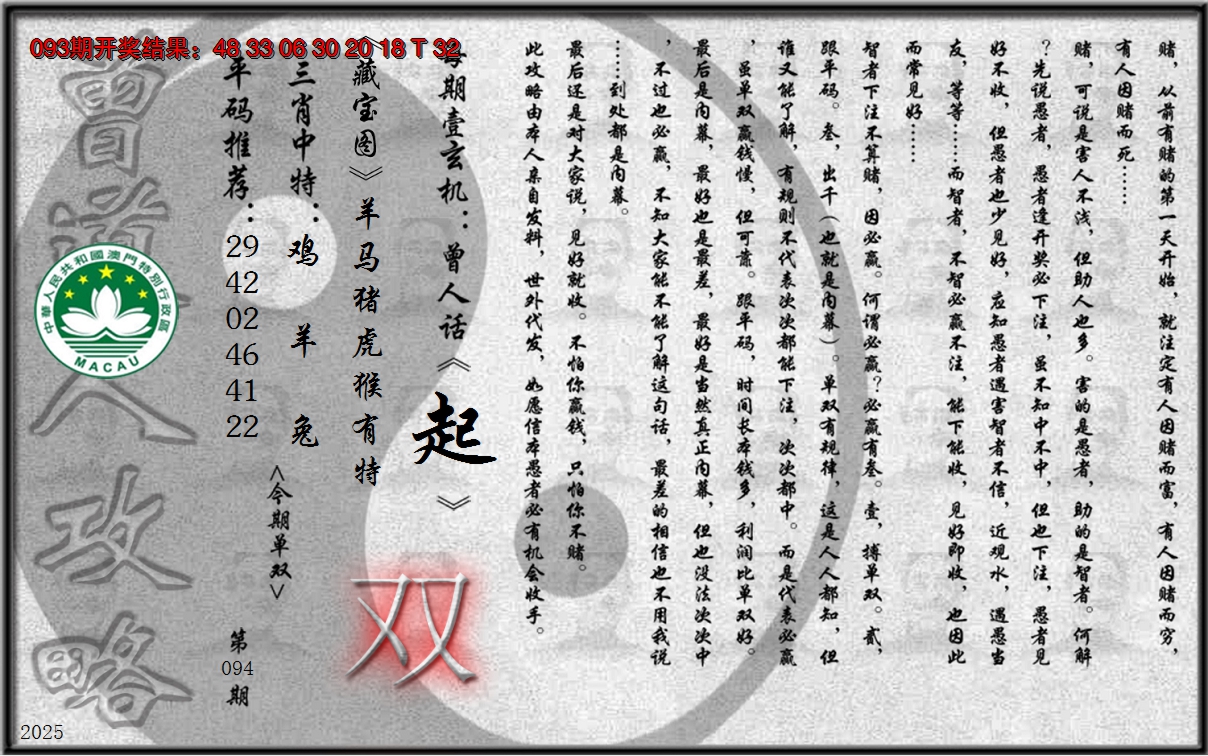 093期开奖结果：48 33 06 30 20 18 T 32
赌，从前有赌的第一天开始，就注定有人因赌而富，有人因赌而穷，
有人因赌而死……
赌，可说是害人不浅，但助人也多。害的是愚者，助的是智者。何解
？先说愚者，愚者逢开奖必下注，虽不知中不中，但也下注，愚者见
好不收，但愚者也少见好，应知愚者遇害智者不信，近观水，遇愚当
友，等等……而智者，不智必赢不注，能下能收，见好即收，也因此
而常见好……
智者下注不算赌，因必赢。何谓必赢？必赢有叁。壹，搏单双。贰，
跟平码。叁，出千（也就是内幕）。单双有规律，这是人人都知，但
谁又能了解，有规则不代表次次都能下注，次次都中。而是代表必赢
，虽单双赢钱慢，但可靠。跟平码，时间长本钱多，利润比单双好。
最后是内幕，最好也是最差，最好是当然真正内幕，但也没法次次中
，不过也必赢，不知大家能不能了解这句话，最差的相信也不用我说
……到处都是内幕。
最后还是对大家说，见好就收。不怕你赢钱，只怕你不赌。
此攻略由本人亲自发料，世外代发，如愿信本愚者必有机会收手。
每期壹玄机：曾人话《起》
《藏宝图》羊马猪虎猴有特
双
三肖中特：鸡羊兔
<今期单双>
平码推荐：29 42 02 46 41 22
第094期
曾道人攻略
中華人民共和國澳門特別行政區
MACAU
2025